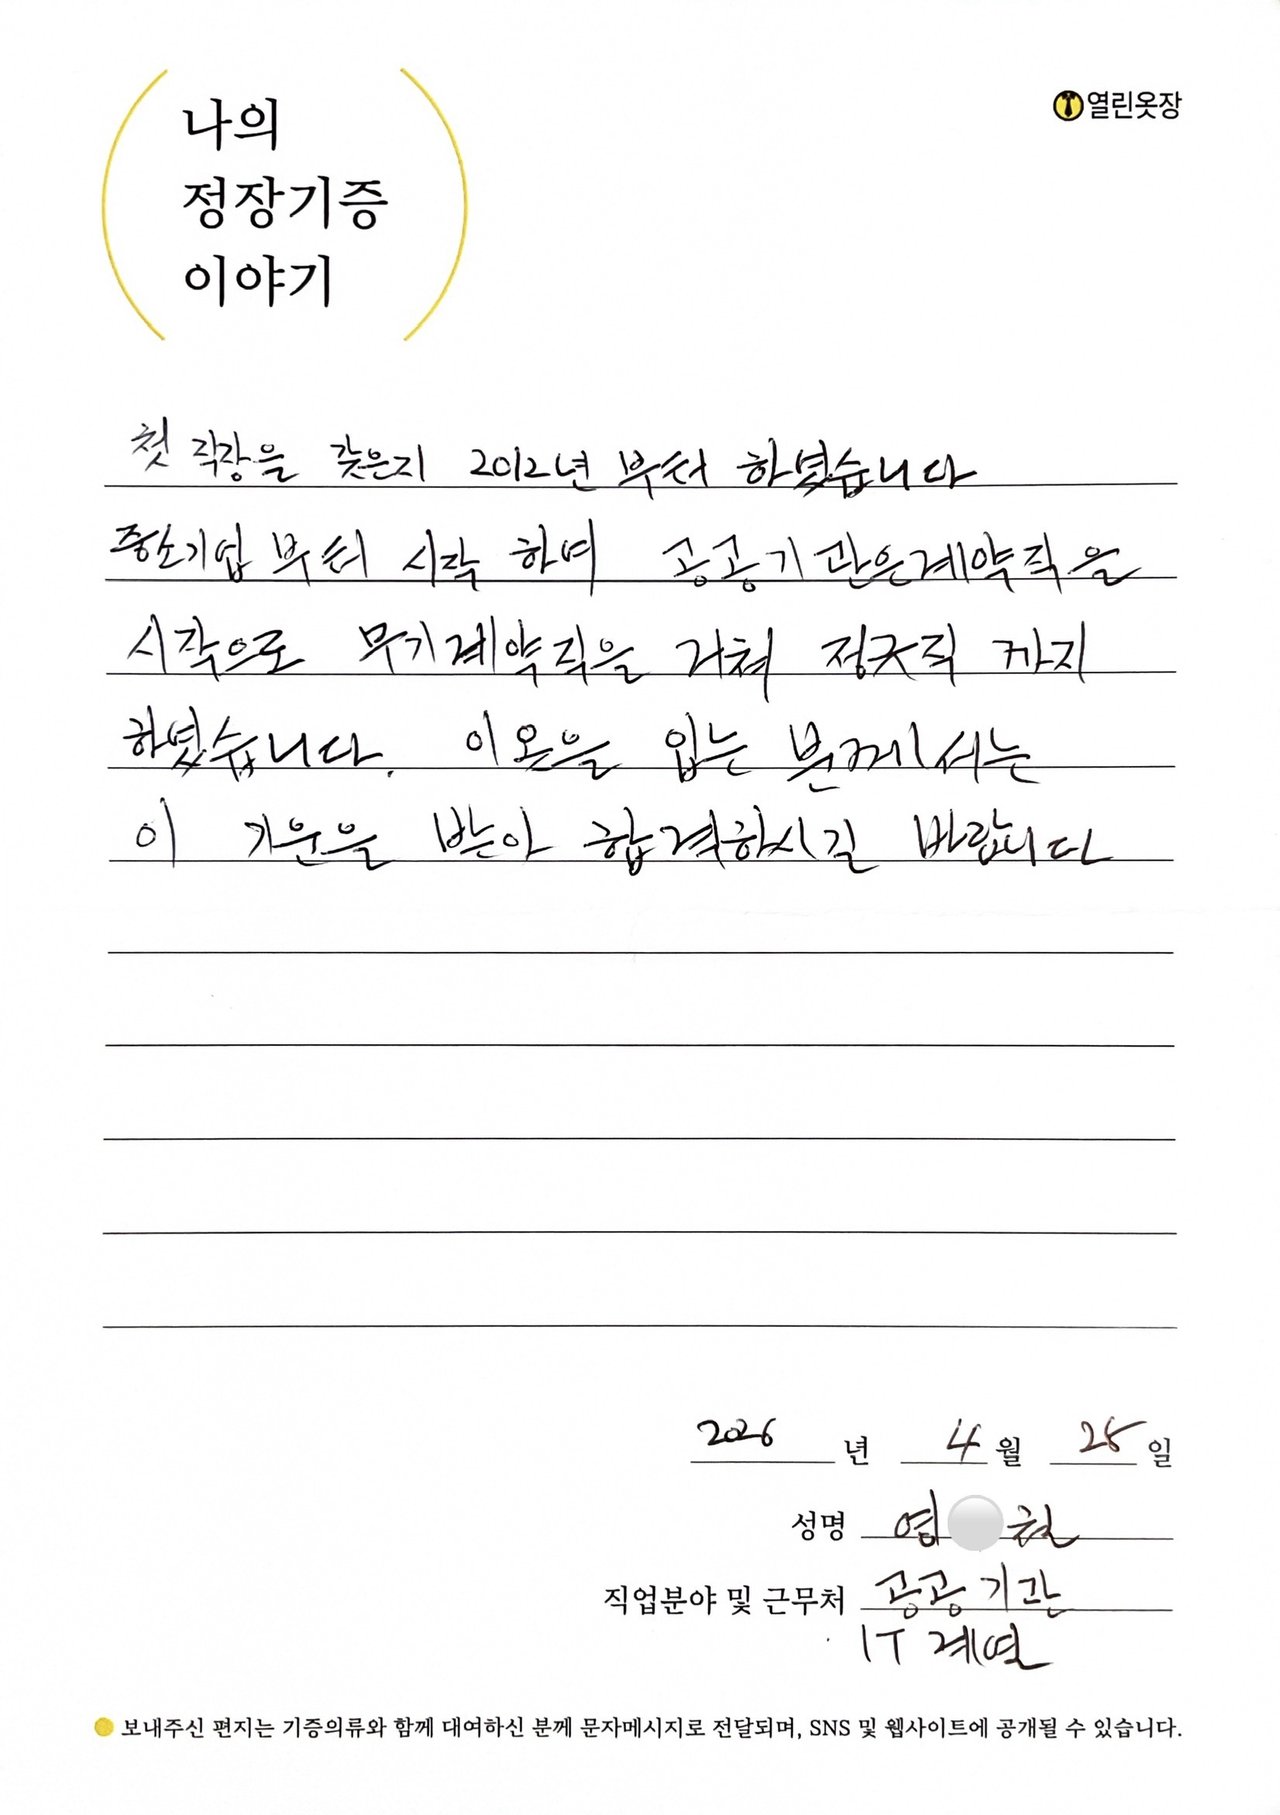 나의
정장기증
이야기
열린옷장
첫 직장을 갖은지 2012년 부터 하였습니다
중소기업 부터 시작 하며 공공기관은계약직을
시작으로 무기계약직을 거쳐 정규직 까지
하였습니다. 이옷을 입는 분께서는
이 기운을 받아 합격하시길 바랍니다
2026 년 4 월 25 일
성명 염 철
직업분야 및 근무처 공공기관
IT 계열
보내주신 편지는 기증의류와 함께 대여하신 분께 문자메시지로 전달되며, SNS 및 웹사이트에 공개될 수 있습니다.